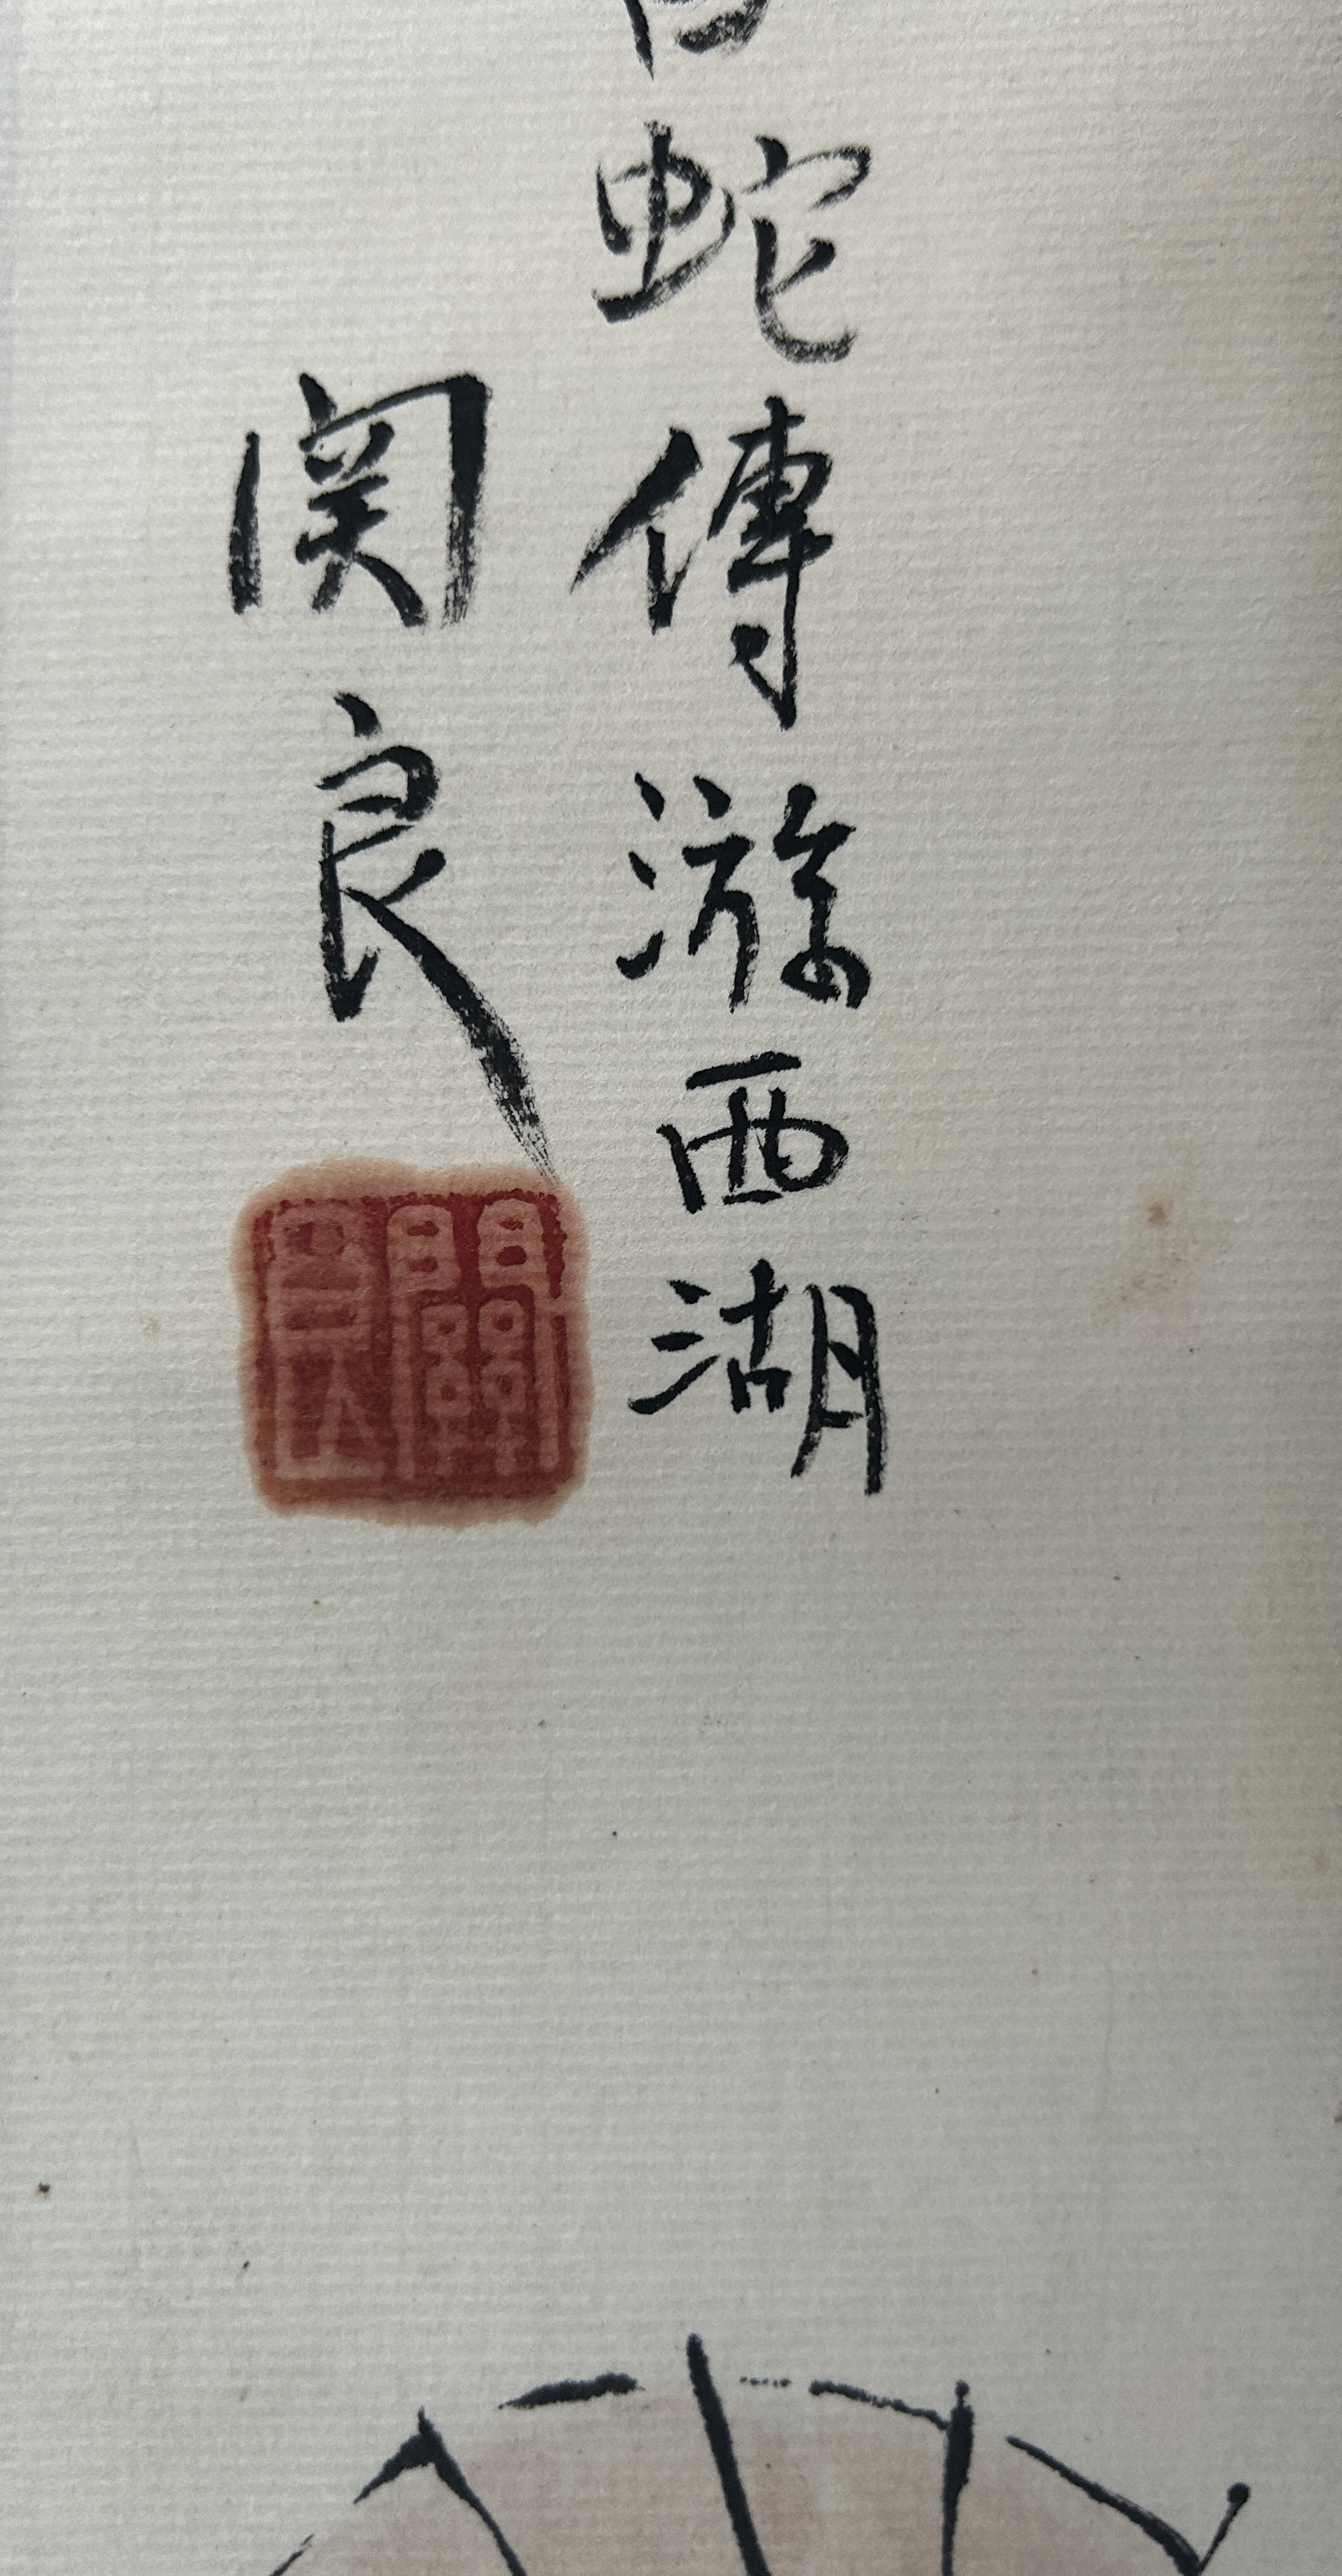 白蛇傳游西湖
関良
關良